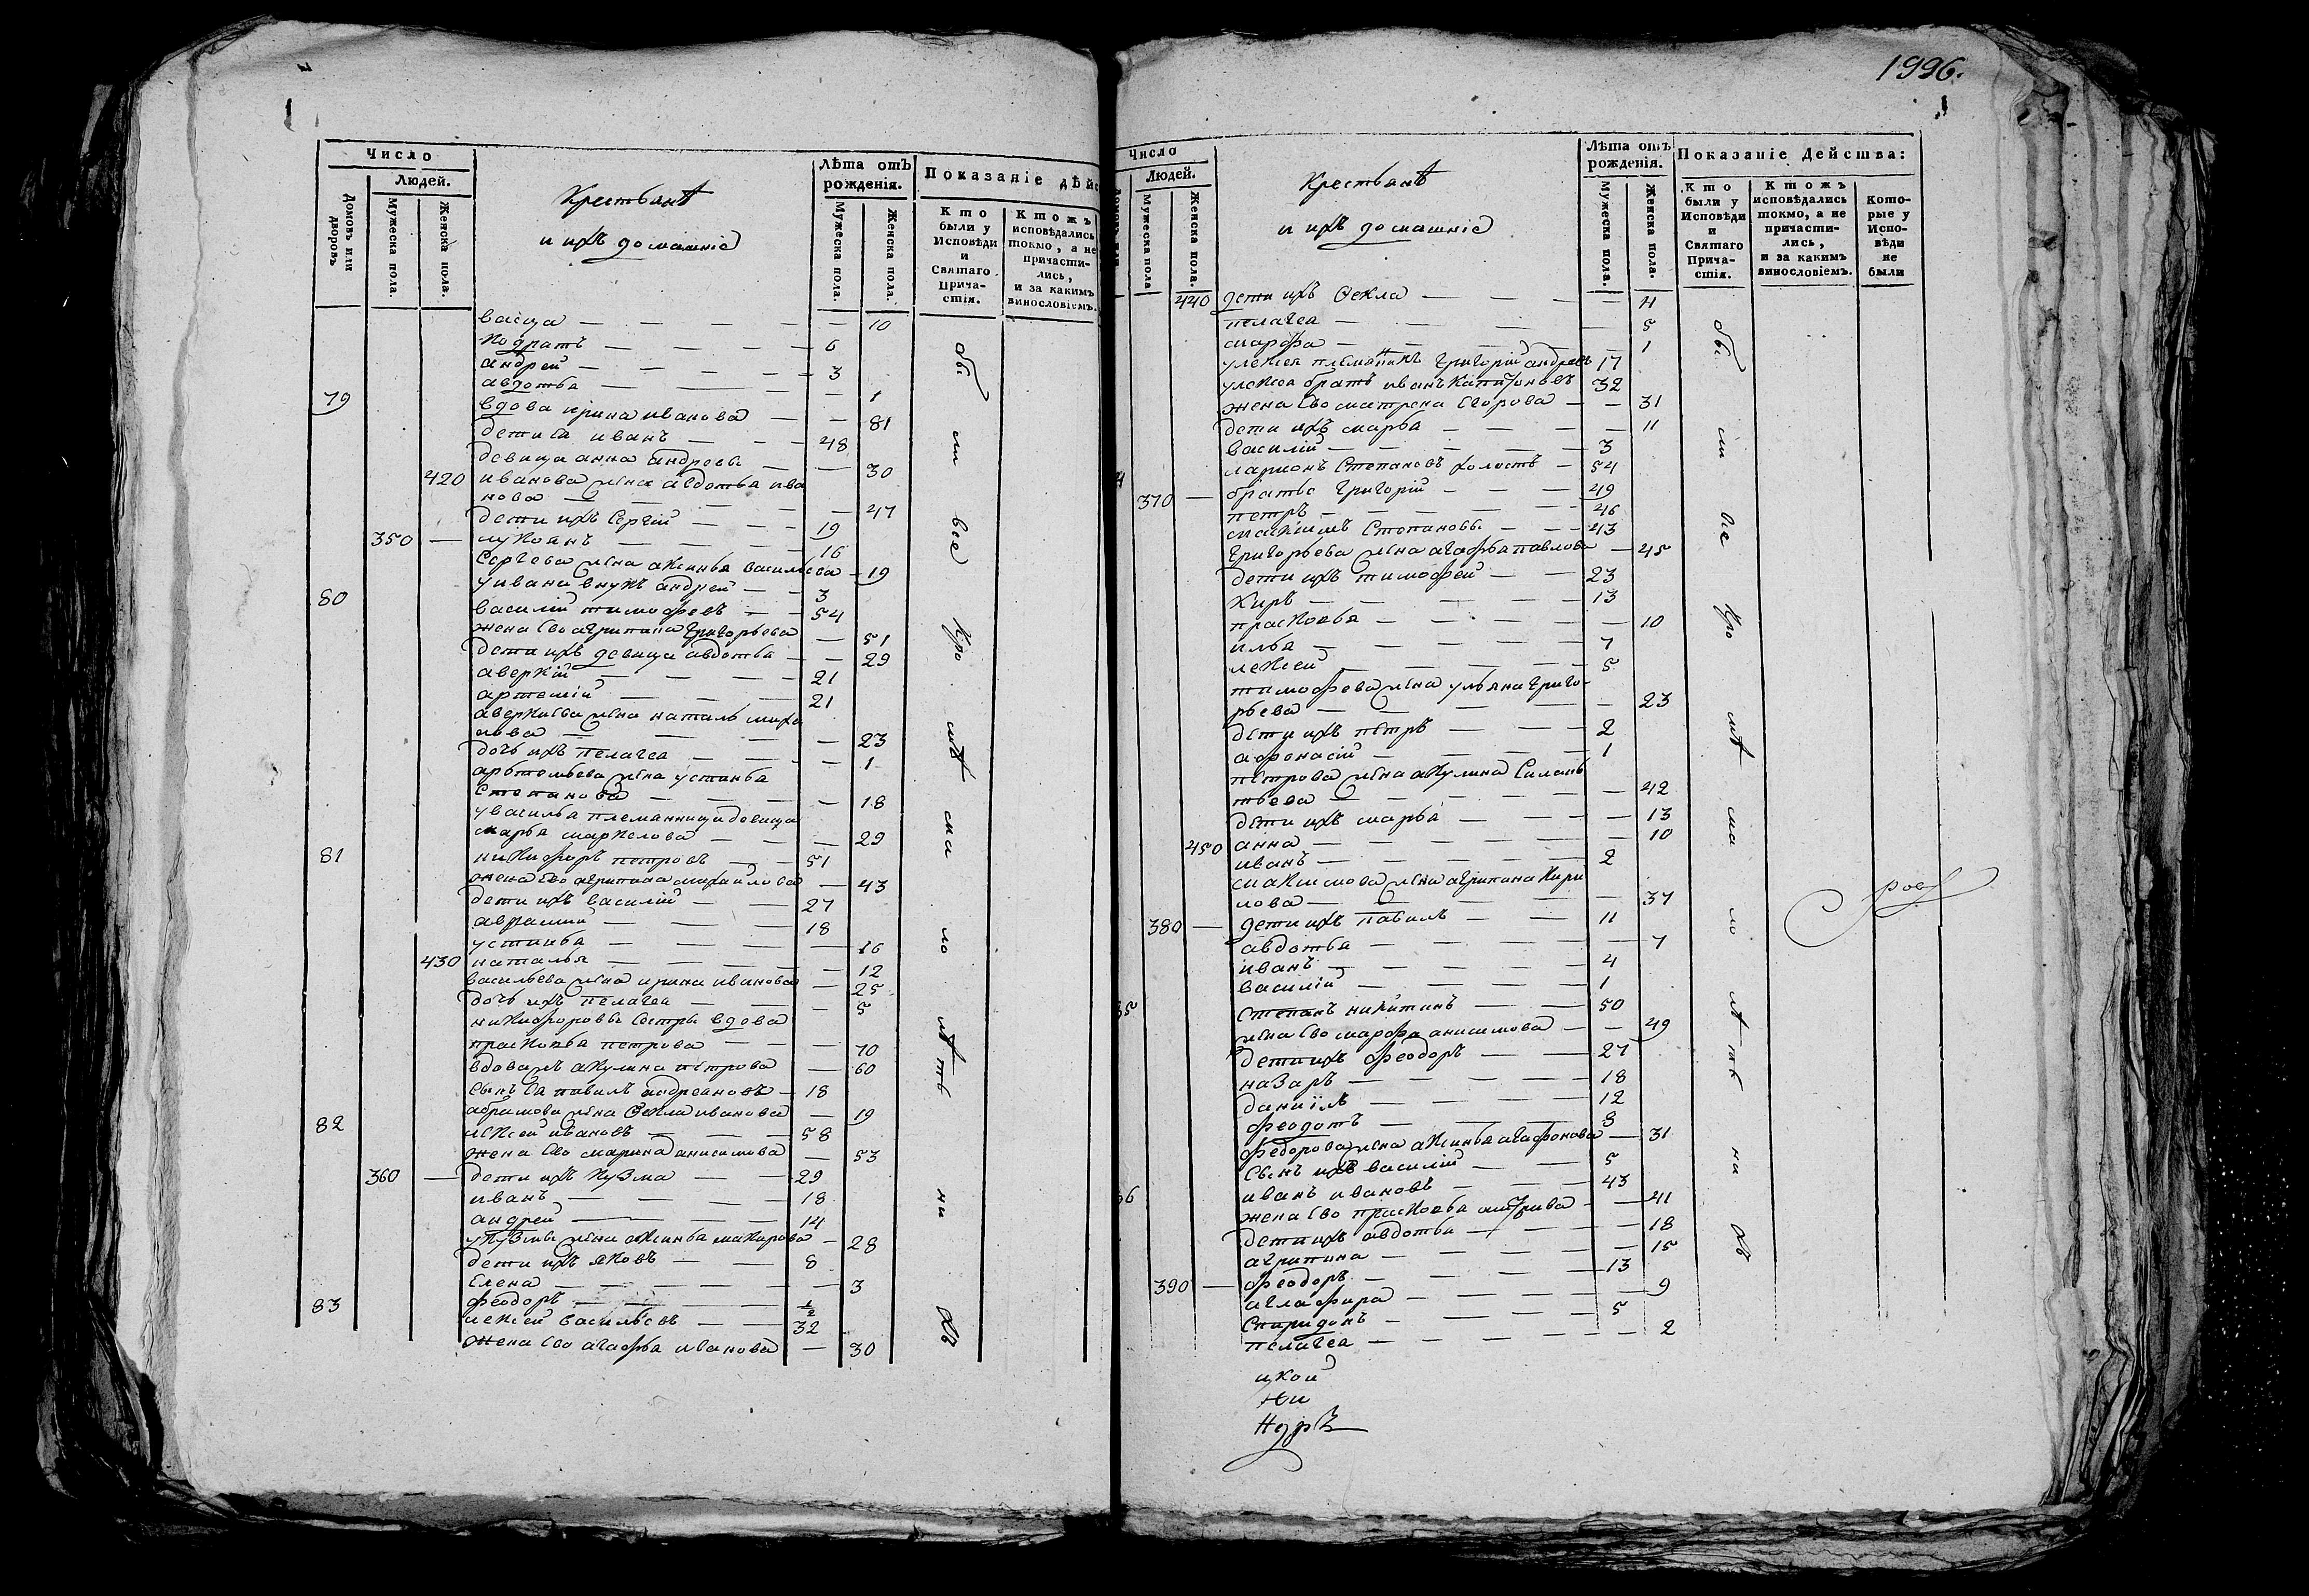 1996.
Число
Людей.
Домовъ или дворовъ
Мужеска пола.
Женска пола.
Крестьянѣ
и ихъ домашнie
Лѣта отъ рожденiя.
Мужеска пола.
Женска пола.
Показанiе дѣйс
Кто были у Исповѣди и Святаго Прича-стiя.
Ктожъ исповѣдались токмо, а не причасти-лись, и за какимъ винословiемъ.
васса — — — — — 10
Кодратъ — — — — 6
андрей — — — — 3
авдотья — — — — 1
79 вдова ирина иванова — — 81
дети ея иванъ — — 48
девица анна андреевы — — 30
420 иванова жена авдотья ива
нова — — — — 47
дети ихъ Сергiй — — 19
350 — лукоянъ — — — 16
Сергеева жена аксинья васильева — 19
у ивана внукъ андрей — — 3
80 василiй тимофеевъ — — 54
жена ево агрипина Григорьева — 51
дети ихъ девица авдотья — — 29
аверкiй — — — — 21
артемiй — — — 21
аверкиева жена наталь миха
лова — — — — 23
дочь ихъ пелагея — — — 1
артемьева жена устинья
Степанова — — — — 18
у василья племянница девица
марья маркелова — — — 29
81 никифоръ петровъ — — 51
жена ево агрипина михайлова — 43
дети ихъ василiй — — 27
аврамий — — — 18
устинья — — — — 16
430 наталья — — — — 12
васильева жена ирина иванова — 25
дочь ихъ пелагея — — — 5
никифоровы сестры вдова
прасковья петрова — — — 70
вдова жъ акулина петрова — 60
сынъ ея павилъ андреяновъ — 18
абрамова жена Фекла иванова — 19
82 лексей ивановъ — — — 58
жена ево марина анисимова — 53
360 — дети ихъ кузма — — 29
иванъ — — — — 18
андрей — — — 14
у кузмы жена аксинья макирова — 28
дети ихъ яковъ — — 8
Елена — — — — — 3
феодоръ — — — — 1/2
83 лексей васильевъ — — 32
жена ево агафья иванова — 30
обы
ли
все
кро
мѣ
ма
ло
лѣ
тъ
ни
хъ
Число
Людей.
Мужеска пола
Женска пола.
Крестьянѣ
и ихъ домашнiе
Лѣта отъ рожденiя.
Мужеска пола.
Женска пола.
Показанiе Действа:
Кто были у Исповѣди и Святаго Прича-стiя.
Ктожъ исповѣдались токмо, а не причасти-лись, и за какимъ винословiемъ.
Кото-рые у Испо-вѣди не были
440 дети ихъ Фекла — — — — 11
пелагея — — — — 5
марфа — — — — 1
у лексея племянникъ григорiй андреевъ 17
у лексея братъ иванъ Капитоновъ 32
жена ево матрена Егорова — — 31
дети ихъ марья — — — — 11
василiй — — — — — 3
ларионъ Степановъ холостъ — 54
370 — братья григорiй — — — 49
петръ — — — — 46
максимъ Степановы — — 43
григорьева жена агафья павлова — 45
дети ихъ тимофей — — 23
Киръ — — — — — 13
прасковья — — — — — 10
илья — — — — — 7
лексей — — — — — 5
тимофеева жена ульяна григо-
рьева — — — — — 23
дети ихъ петръ — — — 2
афонасiй — — — — 1
петрова жена акулина Силань
тьева — — — — — 42
дети ихъ марья — — — — 13
анна — — — — — 10
450 иванъ — — — — — 2
максимова жена агрипина кири
лова — — — — — 37
380 — дети ихъ павилъ — — 11
авдотья — — — — — 7
иванъ — — — — — 4
василiй — — — — — 1
85 Степанъ никитинъ — — 50
жена ево марфа анисимова — — 49
дети ихъ феодоръ — — 27
назаръ — — — — 18
данiилъ — — — — 12
феодотъ — — — — 8
федорова жена аксинья агафонова — 31
сынъ ихъ василiй — — 5
86 иванъ ивановъ — — — 43
жена ево прасковья митрива — — 41
дети ихъ авдотья — — — 18
агрипина — — — — — 15
390 — феодоръ — — — — 13
аглафира — — — — — 9
Спиридонъ — — — — 5
пелагея — — — — — 2
обы
ли
все
кро
мѣ
ма
ло
лѣ
тъ
ни
хъ